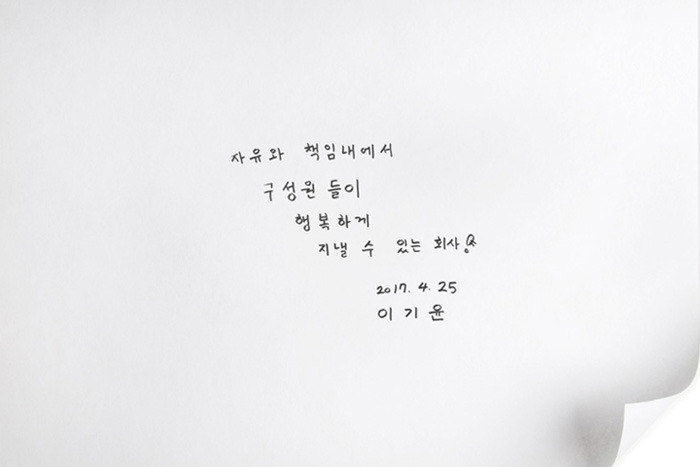 자유와 책임내에서
구성원 들이
행복하게
지낼 수 있는 회사!
2017. 4. 25
이기윤